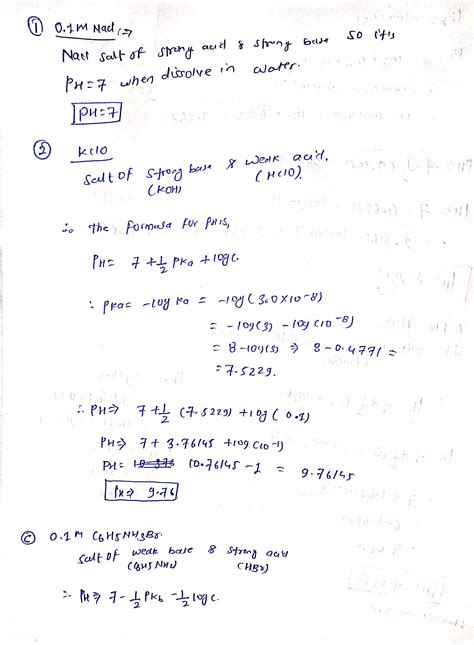 ① 0.1M Nacl :→
Nacl salt of strong acid & strong base so it's
PH=7 when dissolve in water.
PH=7
② KClO
salt of strong base & weak acid.
(KOH) (HClO)
∴ the formula for PH is,
PH= 7 +1/2 PKa + logc.
∴ PKa= -log Ka = -log (3.0×10⁻⁸)
= -log(3) - log(10⁻⁸)
= 8-log(3) ⇒ 8-0.4771 =
= 7.5229.
∴ PH⇒ 7 +1/2 (7.5229) + log (0.1)
PH⇒ 7 + 3.76145 + log(10⁻¹)
PH= 10.76145 -1 = 9.76145
PH⇒ 9.76
© 0.1M C6H5NH3Br.
salt of weak base & strong acid
(C6H5NH2) (HBr)
∴ PH⇒ 7 - 1/2 PKb - 1/2 logc.